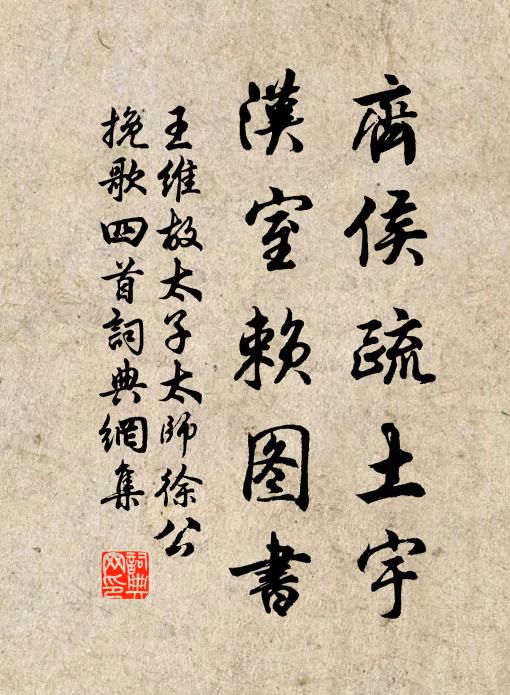 齊侯疏土宇
漢室賴图書
王維故太子太師徐公
挽歌四首詞典網集
詞典網印